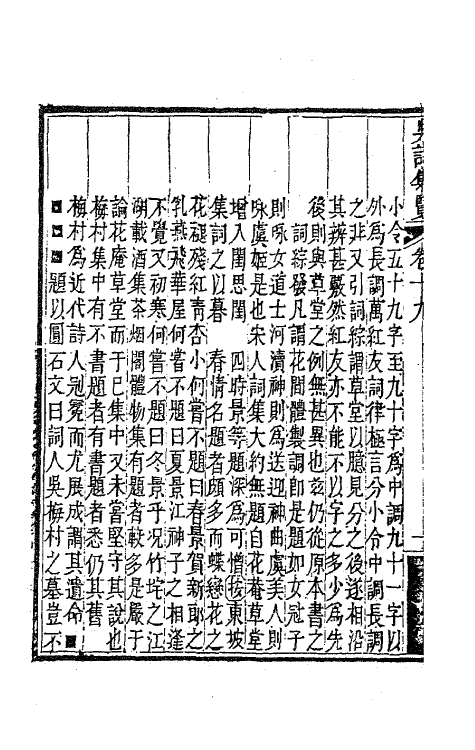 吳詩集覽 卷十九 一
小令五十九字至九十字爲中調九十一字以
外爲長調萬紅友詞律極言分小令中調長調
之非又引詞綜謂草堂以臆見分之後遂相沿
其辨甚覈然紅友亦不能不以字之多少爲先
後則與草堂之例無甚異也茲仍從原本書之
詞綜發凡謂花間體製調即是題如女冠子
則咏女道士河瀆神則爲送迎神曲虞美人則
咏虞姬是也宋人詞集大約無題自花菴草堂
增入閨思閨 四時景等題深爲可憎按東坡
集詞之以暮 春情名題者頗多而蝶戀花之
花褪殘紅靑杏小何嘗不題曰春景賀新郎之
乳燕飛華屋何嘗不題曰夏景江神子之相逢
不覺又初寒何嘗不題曰冬景乎况竹垞之江
湖載酒集茶烟閣體物集有題者較多是嚴于
論花庵草堂而于已集中又未嘗堅守其說也
梅村集中有不書題者有書題者悉仍其舊
梅村爲近代詩人冠冕而尤展成謂其遺命
題以圓石文曰詞人吳梅村之墓豈不